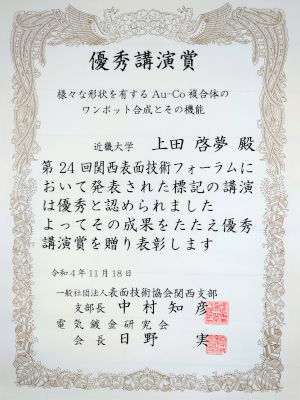 優秀講演賞
様々な形状を有するAu-Co複合体の
ワンポット合成とその機能
近畿大学 上田 啓夢 殿
第24回関西表面技術フォーラムに
おいて発表された標記の講演
は優秀と認められました
よってその成果をたたえ優秀
講演賞を贈り表彰します
令和4年11月18日
一般社団法人表面技術協会関西支部
支部長 中村 知彦
電気鍍金研究会
会長 日野 実